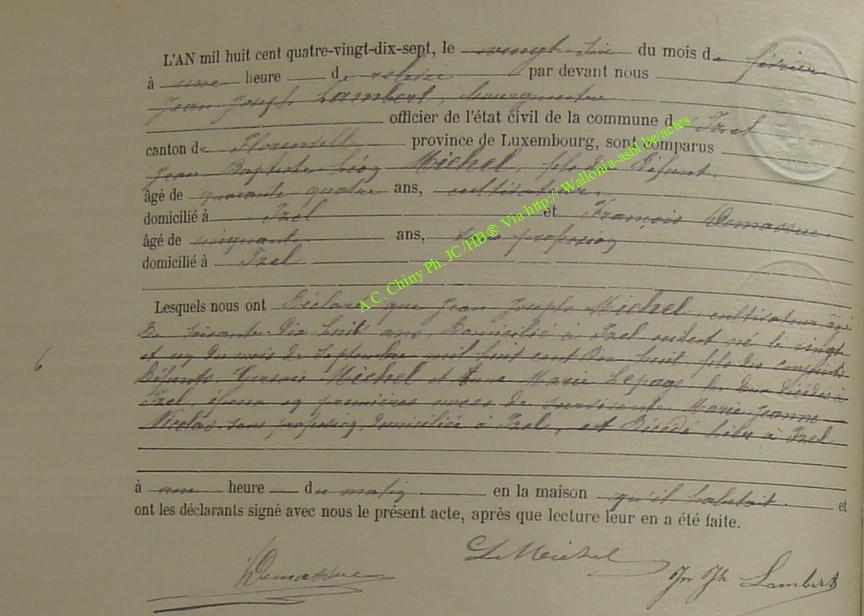 L'AN mil huit cent quatre-vingt-dix-sept, le vingt six du mois de février
à une heure de relevée par devant nous
Jean Joseph Lambert, bourgmestre
officier de l'état civil de la commune d'Izel
canton de Florenville province de Luxembourg, sont comparus
Jean Baptiste Léon Michel, fils du défunt
âgé de quarante quatre ans, cultivateur,
domicilié à Izel et François Demasure
âgé de cinquante ans, sans profession
domicilié à Izel
Lesquels nous ont déclaré que Jean Joseph Michel, cultivateur âgé
de soixante dix huit ans, domicilié à Izel né le vingt
et un du mois de septembre mil huit cent dix huit fils des conjoints
défunts Michel et Anne Marie Lepage les deux décédés à
Izel époux en premières noces de survivante Marie Jeanne
Nicolas sans profession, domiciliée à Izel, est décédé hier à Izel
6
à une heure du matin en la maison qu'il habitait. et
ont les déclarants signé avec nous le présent acte, après que lecture leur en a été faite.
L Michel
Jn Jh Lambert
A.C. Chiny Ph. JC/HB® Via http://Wallonia-asbl.be/actes